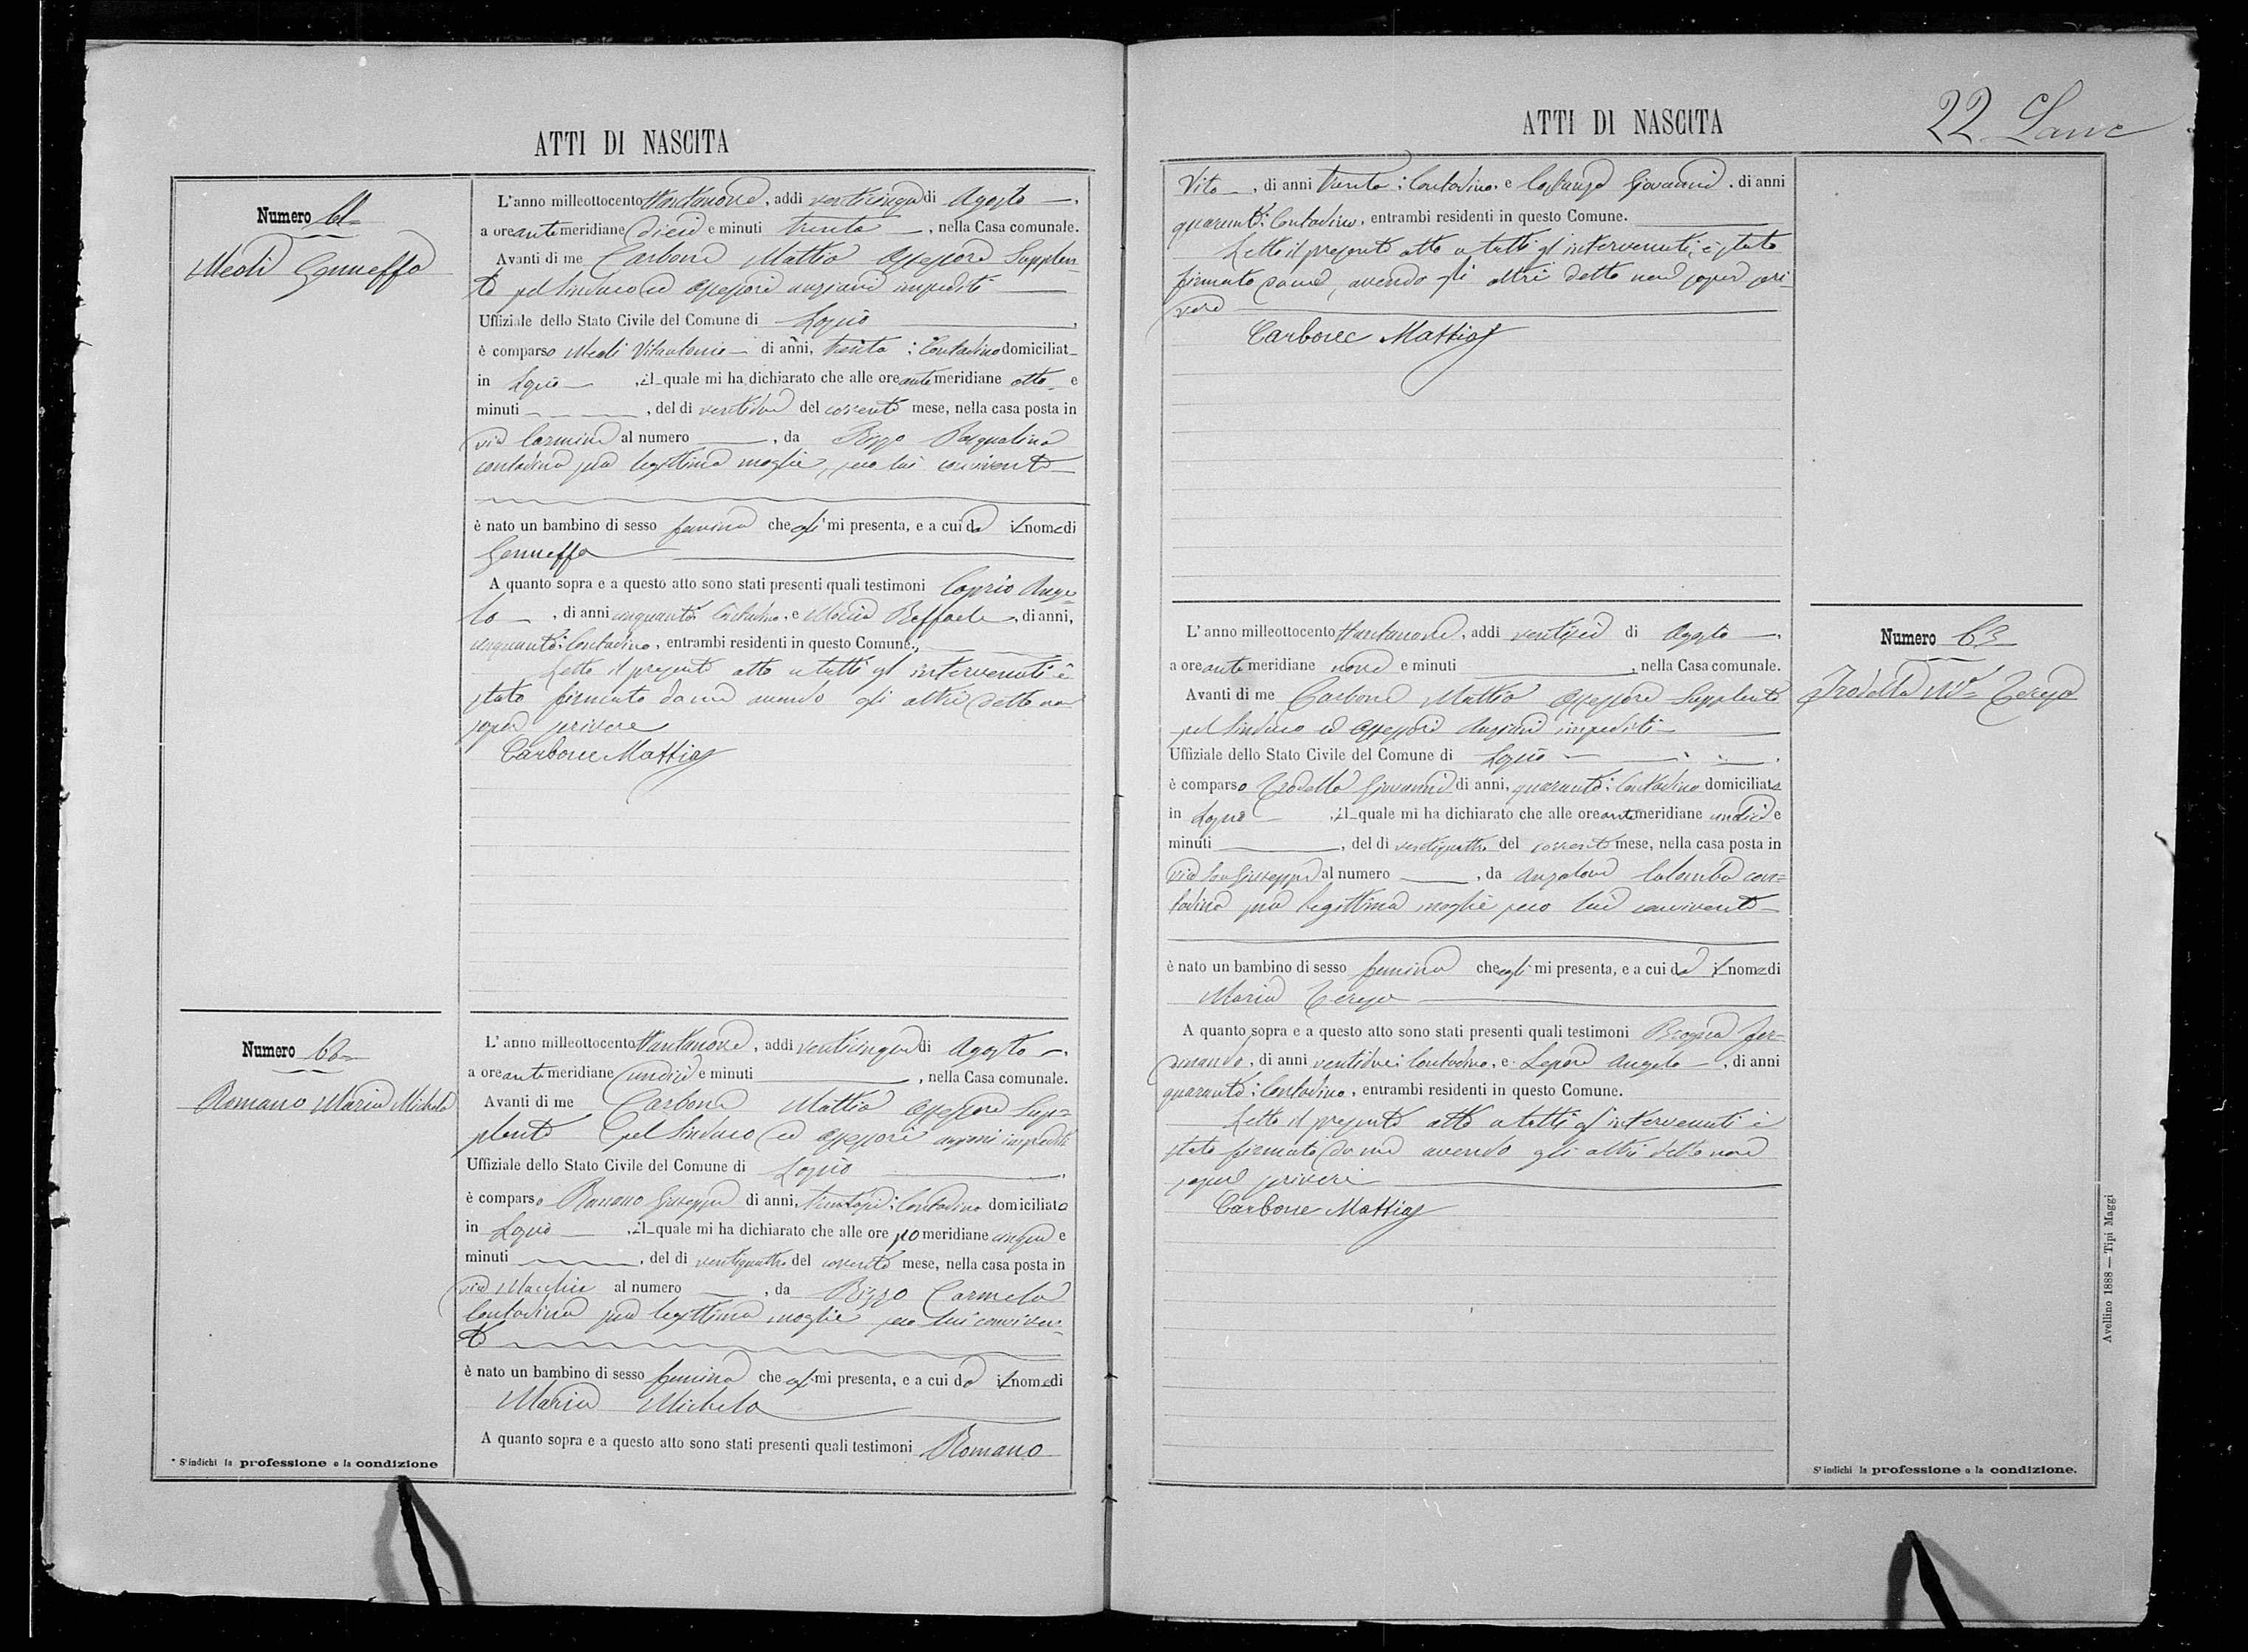 ATTI DI NASCITA
Numero 61
Meoli Genueffa
L'anno milleottocento ottantanove, addi venticinque di Agosto
a ore anti meridiane dieci e minuti trenta, nella Casa comunale.
Avanti di me Carbone Mattia Assessore Supplen-
te pel Sindaco ed Assessori anziani impediti
Uffiziale dello Stato Civile del Comune di
è comparso Meoli Vitantonio di anni, trenta; Contadino domiciliat
in , il quale mi ha dichiarato che alle ore anti meridiane otto e
minuti , del di ventidue del corrente mese, nella casa posta in
via Carmine al numero , da Rizzo Pasqualina
contadina sua legittima moglie, seco lui convivente
è nato un bambino di sesso femina che egli mi presenta, e a cui da il nome di
Genueffa
A quanto sopra e a questo atto sono stati presenti quali testimoni Caprio Ange-
lo, di anni cinquanta Contadino, e Raffaele, di anni,
cinquanta; Contadino, entrambi residenti in questo Comune.
Letto il presente atto a tutti gl'intervenuti è
stato firmato da me avendo gli altri detto non
saper scrivere
Carbone Mattia
Numero 62
Romano Maria Michela
L'anno milleottocento ottantanove, addi venticinque di Agosto
a ore anti meridiane undici e minuti , nella Casa comunale.
Avanti di me Carbone Mattia Assessore Sup-
plente pel Sindaco ed Assessori anziani impediti
Uffiziale dello Stato Civile del Comune di
è comparso Romano Giuseppe di anni, trentasei; Contadino domiciliato
in , il quale mi ha dichiarato che alle ore po meridiane cinque e
minuti , del di ventiquattro del corrente mese, nella casa posta in
via Macchie al numero , da Rizzo Carmela
Contadina sua legittima moglie seco lui conviven-
te
è nato un bambino di sesso femina che egli mi presenta, e a cui da il nome di
Maria Michela
A quanto sopra e a questo atto sono stati presenti quali testimoni Romano
* S'indichi la professione o la condizione
ATTI DI NASCITA
22
Vito, di anni trenta; Contadino, e Costanzo Giovanni, di anni
quaranta; Contadino, entrambi residenti in questo Comune.
Letto il presente atto a tutti gl'intervenuti, è stato
firmato da me, avendo gli altri detto non saper scri-
vere
Carbone Mattia
Numero 63
Ma Teresa
L'anno milleottocento ottantanove, addi ventisei di Agosto
a ore anti meridiane nove e minuti , nella Casa comunale.
Avanti di me Carbone Mattia Assessore Supplente
pel Sindaco ed Assessori Anziani impediti
Uffiziale dello Stato Civile del Comune di
è comparso Giovanni di anni, quaranta; Contadino domiciliato
in , il quale mi ha dichiarato che alle ore anti meridiane undici e
minuti , del di ventiquattro del corrente mese, nella casa posta in
via San Giuseppe al numero , da Colomba con-
tadina sua legittima moglie seco lui convivente
è nato un bambino di sesso femina che egli mi presenta, e a cui da il nome di
Maria Teresa
A quanto sopra e a questo atto sono stati presenti quali testimoni Fer-
dinando, di anni ventidue; Contadino, e Lepore Angelo, di anni
quaranta; Contadino, entrambi residenti in questo Comune.
Letto il presente atto a tutti gl'intervenuti è
stato firmato da me avendo gli altri detto non
saper scrivere
Carbone Mattia
S'indichi la professione o la condizione.
Avellino 1888 — Tipi Maggi